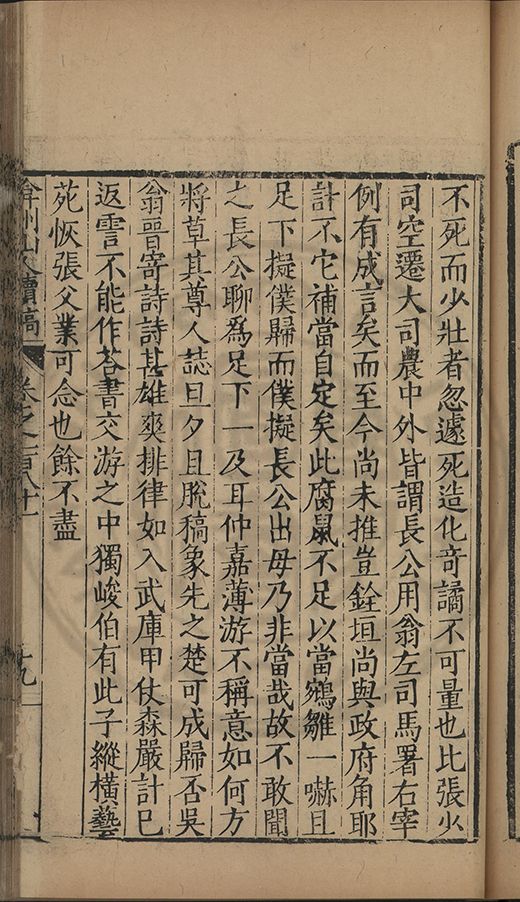 不死而少壯者忽遽死造化奇譎不可量也比張少
司空遷大司農中外皆謂長公用翁左司馬署右宰
例有成言矣而至今尚未推豈銓垣尚與政府角耶
計不它補當自定矣此腐鼠不足以當鵷雛一嚇且
足下擬僕歸而僕擬長公出毋乃非當哉故不敢聞
之長公聊為足下一及耳仲嘉薄游不稱意如何方
將草其尊人誌旦夕且脫稿象先之楚可成歸否吳
翁晋寄詩詩甚雄爽排律如入武庫甲仗森嚴計已
返雲不能作荅書交游之中獨峻伯有此子縱橫藝
苑恢張父業可念也餘不盡
弇州山人續稿 卷之一百八十一 十九